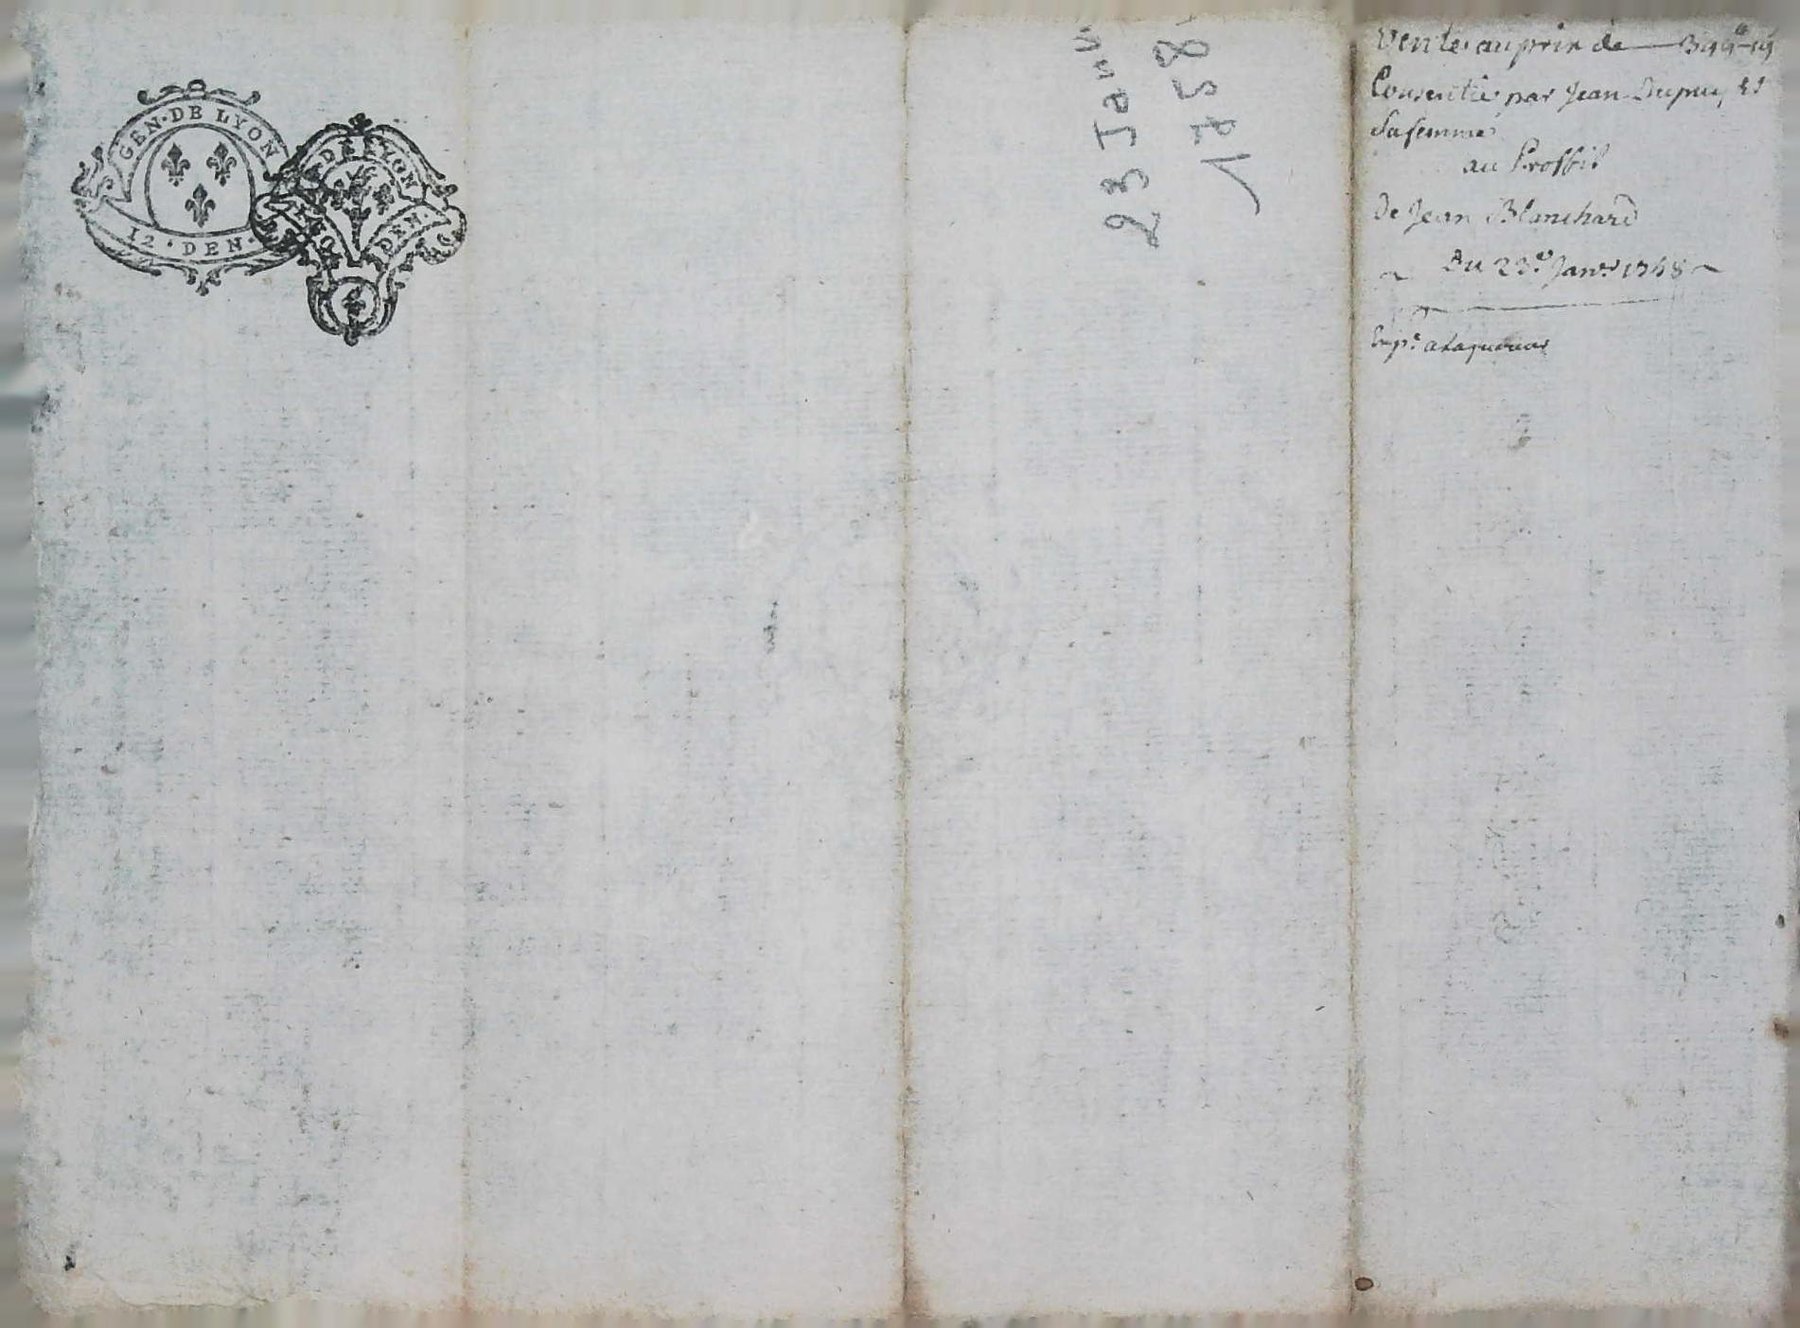 GEN·DE LYON
12·DEN·
DE LYON
DEN·
23 Janv
1758
Vente au prix de
Consentie par Jean Dupuy et
Sa femme
au Proffit
de Jean Blanchard
Du 23e Janer 1758
Expe